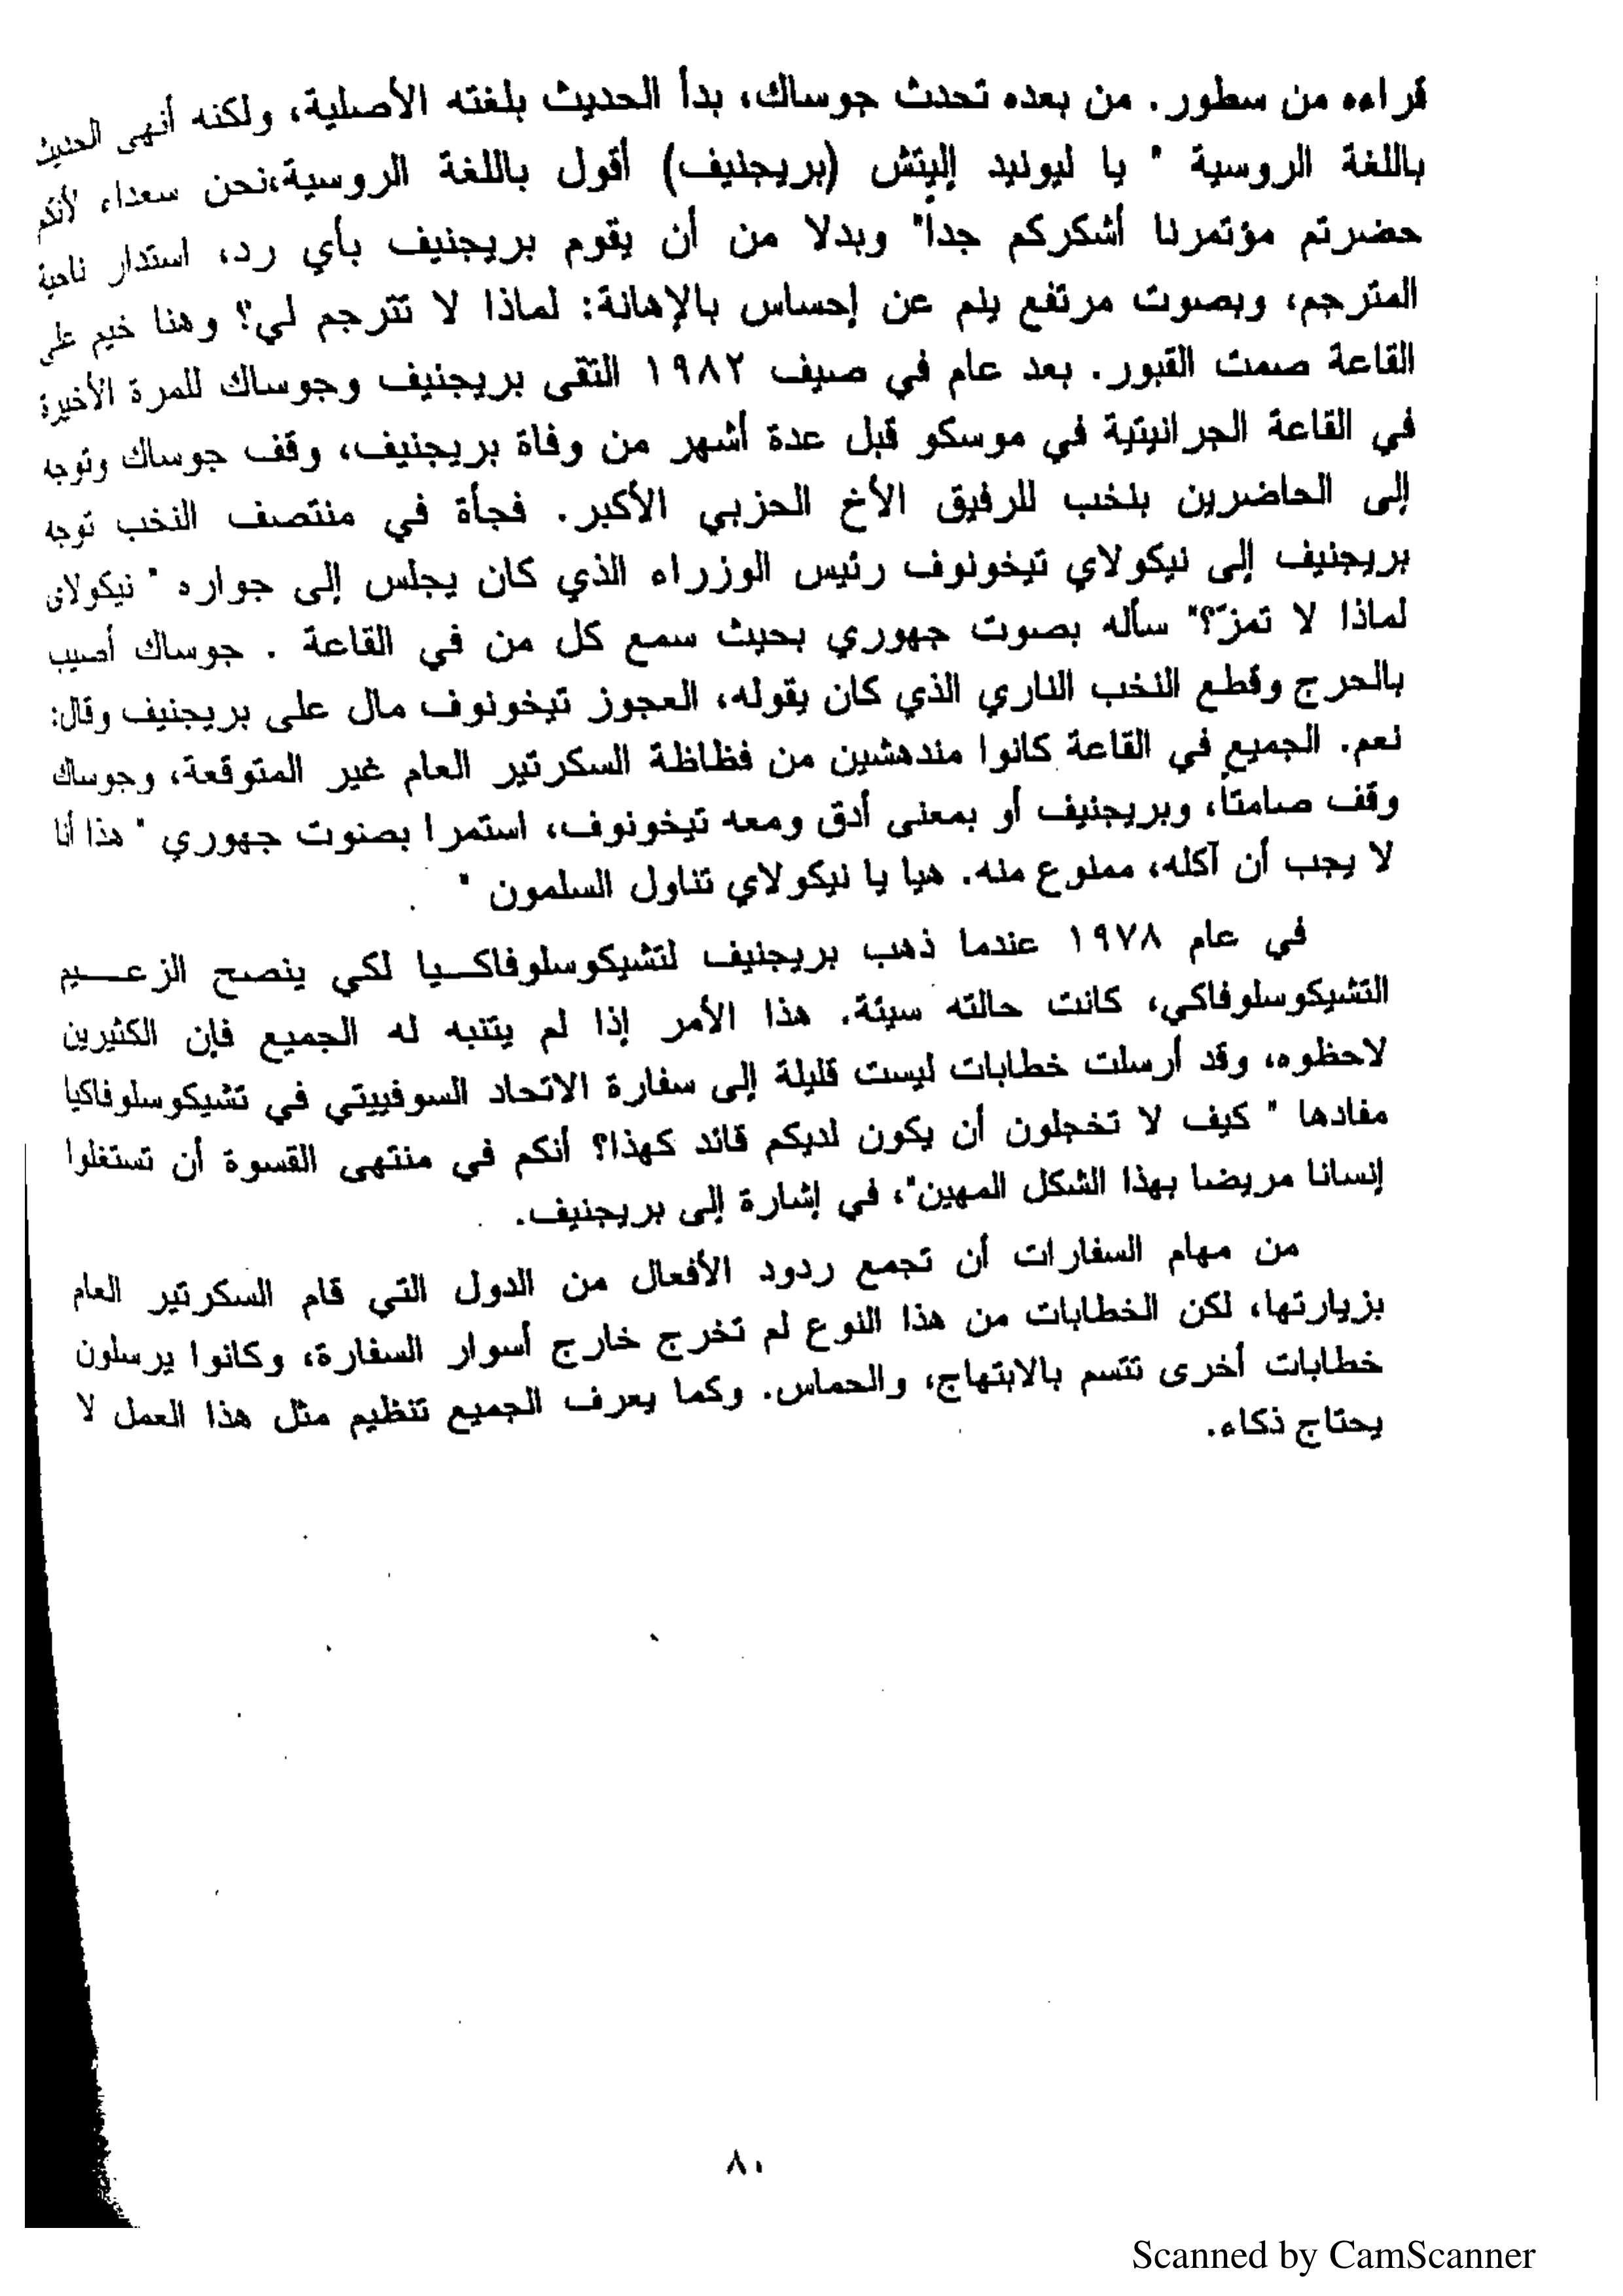 قراءه من سطور. من بعده تحدث جوساك، بدأ الحديث بلغته الأصلية، ولكنه أنهى الحديث
باللغة الروسية " يا ليونيد إليتش (بريجنيف) أقول باللغة الروسية،نحن سعداء لأنكم
حضرتم مؤتمرنا أشكركم جداً" وبدلا من أن يقوم بريجنيف بأي رد، استدار ناحية
المترجم، وبصوت مرتفع ينم عن إحساس بالإهانة: لماذا لا تترجم لي؟ وهنا خيم على
القاعة صمت القبور. بعد عام في صيف ١٩٨٢ التقى بريجنيف وجوساك للمرة الأخيرة
في القاعة الجرانيتية في موسكو قبل عدة أشهر من وفاة بريجنيف، وقف جوساك وتوجه
إلى الحاضرين بنخب للرفيق الأخ الحزبي الأكبر. فجأة في منتصف النخب توجه
بريجنيف إلى نيكولاي تيخونوف رئيس الوزراء الذي كان يجلس إلى جواره " نيكولاى
لماذا لا تمزّ؟" سأله بصوت جهوري بحيث سمع كل من في القاعة . جوساك أصيب
بالحرج وقطع النخب الناري الذي كان يقوله، العجوز تيخونوف مال على بريجنيف وقال:
نعم. الجميع في القاعة كانوا مندهشين من فظاظة السكرتير العام غير المتوقعة، وجوساك
وقف صامتاً، وبريجنيف أو بمعنى أدق ومعه تيخونوف، استمرا بصوت جهوري " هذا أنا
لا يجب أن آكله، ممنوع منه. هيا يا نيكولاي تناول السلمون "
في عام ١٩٧٨ عندما ذهب بريجنيف لتشيكوسلوفاكـيا لكي ينصح الزعـــيم
التشيكوسلوفاكي، كانت حالته سيئة. هذا الأمر إذا لم يتنبه له الجميع فإن الكثيرين
لاحظوه، وقد أرسلت خطابات ليست قليلة إلى سفارة الاتحاد السوفييتي في تشيكوسلوفاكيا
مفادها " كيف لا تخجلون أن يكون لديكم قائد كهذا؟ أنكم في منتهى القسوة أن تستغلوا
إنسانا مريضا بهذا الشكل المهين"، في إشارة إلى بريجنيف.
من مهام السفارات أن تجمع ردود الأفعال من الدول التي قام السكرتير العام
بزيارتها، لكن الخطابات من هذا النوع لم تخرج خارج أسوار السفارة، وكانوا يرسلون
خطابات أخرى تتسم بالابتهاج، والحماس. وكما يعرف الجميع تنظيم مثل هذا العمل لا
يحتاج ذكاء.
٨٠
Scanned by CamScanner